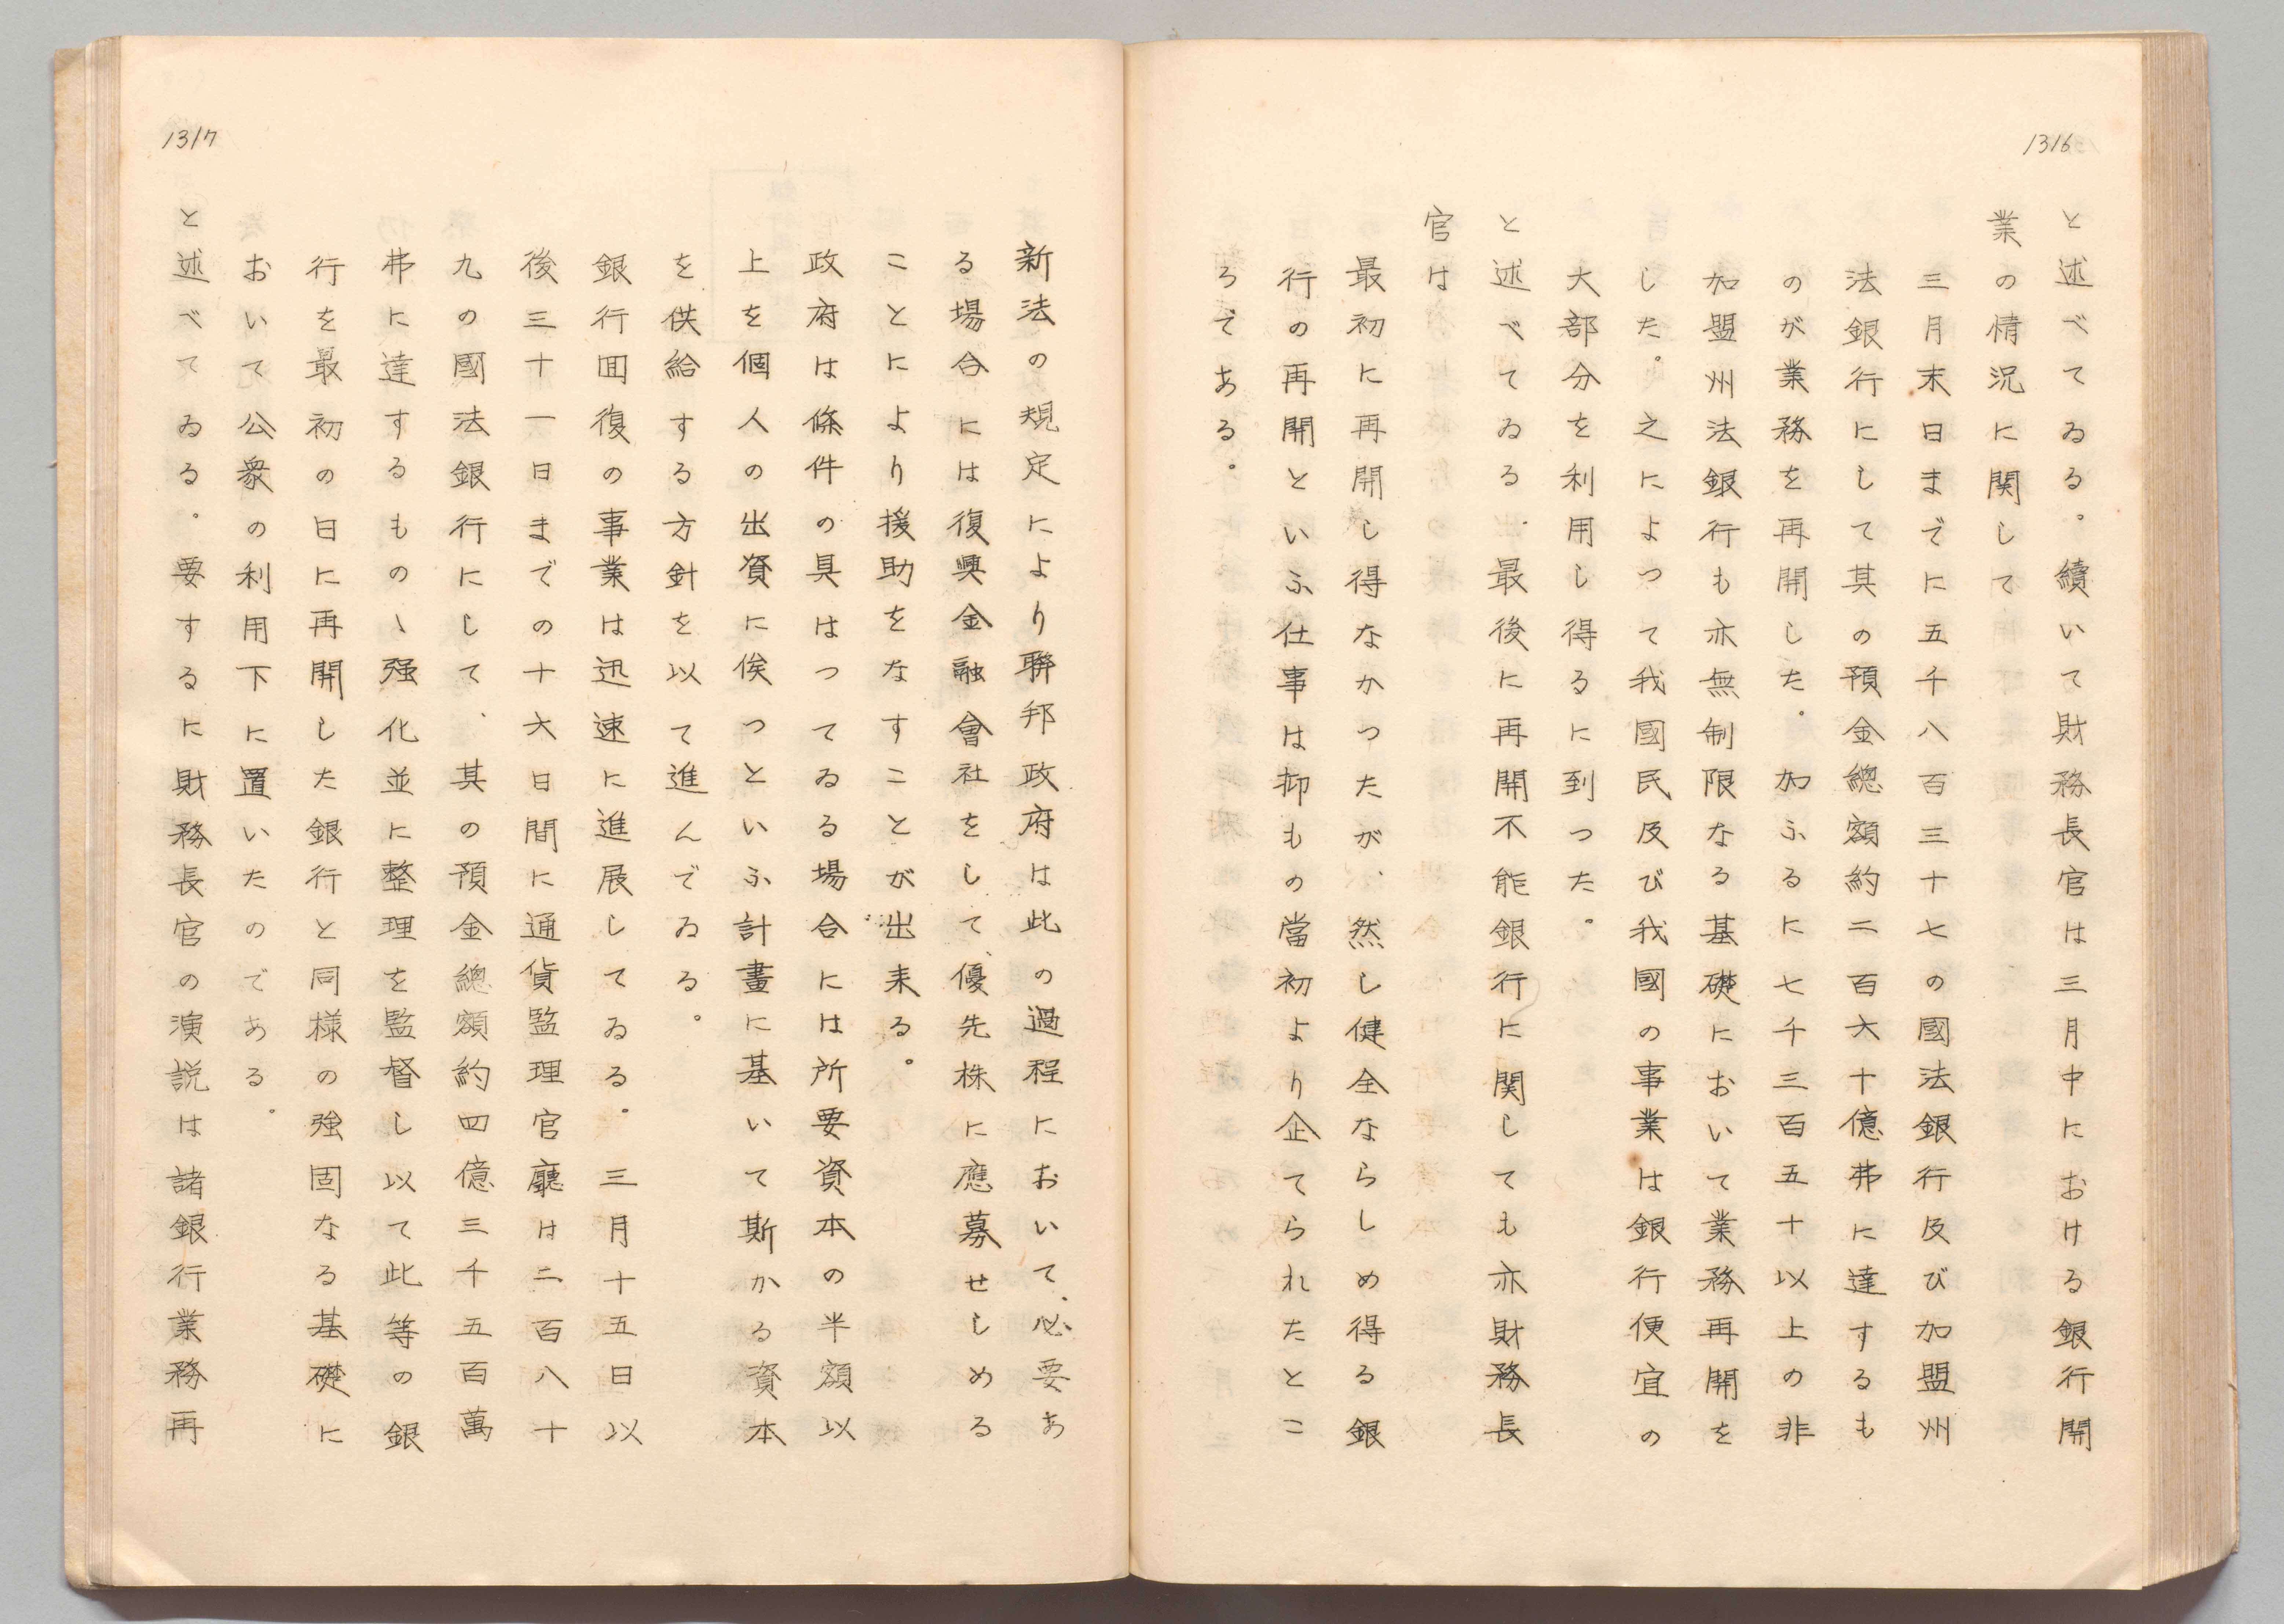 1316
と述べてゐる。續いて財務長官は三月中における銀行開
業の情況に関して
三月末日までに五千八百三十七の國法銀行及び加盟州
法銀行にして其の預金總額約二百六十億弗に達するも
のが業務を再開した。加ふるに七千三百五十以上の非
加盟州法銀行も亦無制限なる基礎において業務再開を
した。之によつて我國民及び我國の事業は銀行便宜の
大部分を利用し得るに到つた。
と述べてゐる。最後に再開不能銀行に関しても亦財務長
官は
最初に再開し得なかつたが、然し健全ならしめ得る銀
行の再開といふ仕事は抑もの當初より企てられたとこ
ろである。
1317
新法の規定により聯邦政府は此の過程において、必要あ
る場合には復興金融會社をして、優先株に應募せしめる
ことにより援助をなすことが出来る。
政府は條件の具はつてゐる場合には所要資本の半額以
上を個人の出資に俟つといふ計畫に基いて斯かる資本
を供給する方針を以て進んでゐる。
銀行囬復の事業は迅速に進展してゐる。三月十五日以
後三十一日までの十六日間に通貨監理官廳は二百八十
九の國法銀行にして、其の預金總額約四億三千五百萬
弗に達するものゝ强化並に整理を監督し以て此等の銀
行を最初の日に再開した銀行と同様の強固なる基礎に
おいて公衆の利用下に置いたのである。
と述べてゐる。要するに財務長官の演説は諸銀行業務再